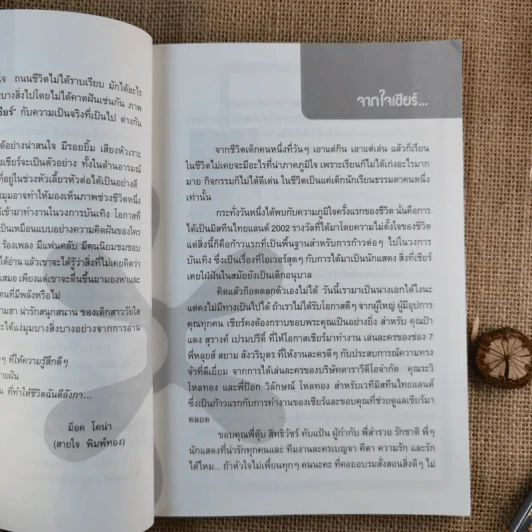 ใจ ถนนชีวิตไม่ได้ราบเรียบ มักได้อะไร
บางสิ่งไปโดยไม่ได้คาดฝันเช่นกัน ภาพ
เชียร์' กับความเป็นจริงที่เป็นไป ต่างกัน
ได้อย่างน่าสนใจ มีรอยยิ้ม เสียงหัวเราะ
งเชียร์จะเป็นตัวอย่าง ทั้งในด้านอารมณ์
ที่อยู่ในช่วงหัวเลี้ยวหัวต่อได้เป็นอย่างดี
มุมอาจทำให้มองเห็นภาพช่วงชีวิตหนึ่ง
ด้เข้ามาทำงานในวงการบันเทิง โอกาสที่
เป็นเหมือนแบบอย่างความคิดฝันของใคร
ร้องเพลง มีแฟนคลับ มีคนนิยมชมชอบ
ได้อ่าน แล้วเขาจะได้รู้ว่าสิ่งที่ไม่เคยคิดว่า
เสมอ เพียงแต่เขาจะตื่นขึ้นมามองหาและ
คนที่มีพลังหรือไม่
ามฮา น่ารักสนุกสนาน ของเด็กสาววัยใส
ะได้แง่มุมบางสิ่งบางอย่างจากการอ่าน
ๆ ที่ให้ความรู้สึกดีๆ
ายฝัน
ที่ทำให้ชีวิตฉันดีลังกา...
ม็อค โคน่า
(สายใจ พิมพ์ทอง)
จากใจเชียร์...
จากชีวิตเด็กคนหนึ่งที่วันๆ เอาแต่กิน เอาแต่เล่น แล้วก็เรียน
ในชีวิตไม่เคยจะมีอะไรที่น่าภาคภูมิใจ เพราะเรียนก็ไม่ได้เก่งอะไรมาก
มาย กิจกรรมก็ไม่ได้ดีเด่น ในชีวิตเป็นแค่เด็กนักเรียนธรรมดาคนหนึ่ง
เท่านั้น
กระทั่งวันหนึ่งได้พบกับความภูมิใจครั้งแรกของชีวิต นั่นคือการ
ได้เป็นมิสทีนไทยแลนด์ 2002 รางวัลที่ได้มาโดยไม่ได้ตั้งใจของชีวิต
แต่สิ่งนี้ก็คือก้าวแรกที่เป็นพื้นฐานสำหรับการก้าวต่อๆ ไปในวงการ
บันเทิง ซึ่งเป็นเรื่องที่โอเวอร์สุดๆ กับการได้มาเป็นนักแสดง สิ่งที่เชียร์
เคยใฝ่ฝันในสมัยยังเป็นเด็กอนุบาล
คิดแล้วก็อดตลกตัวเองไม่ได้ วันนี้เรามาเป็นนางเอกได้ไงนะ
แต่คงไม่มีทางเป็นไปได้ ถ้าเราไม่ได้รับโอกาสดีๆ จากผู้ใหญ่ ผู้มีอุปการ
คุณทุกคน เชียร์คงต้องกราบขอบพระคุณเป็นอย่างยิ่ง สำหรับ คุณป้า
แดง สุรางค์ เปรมปรีดิ์ ที่ให้โอกาสเชียร์มาทำงาน เล่นละครของช่อง 7
พี่หลุยส์ สยาม สังวริบุตร ที่ให้งานละครดีๆ กับประสบการณ์ความทรง
จำที่ดีเยี่ยม จากการได้เล่นละครของบริษัทดาราวิดีโอจำกัด คุณระวิ
โหลทอง และพี่ป๊อก วิลักษณ์ โหลทอง สำหรับเวทีมิสทีนไทยแลนด์
ซึ่งเป็นก้าวแรกกับการทำงานของเชียร์และขอบคุณที่ช่วยดูแลเชียร์มา
ตลอด
ขอบคุณพี่ตั้บ สิทธิวัชร์ ทับแป้น ผู้กำกับ พี่สำรวย รักชาติ พี่ๆ
นักแสดงที่น่ารักทุกคนและ ทีมงานละครเบญจา คีตา ความรัก และรัก
ได้ไหม... ถ้าหัวใจไม่เพี้ยนทุกๆ คนนะคะ ที่คอยอบรมสั่งสอนสิ่งดีๆ ไม่